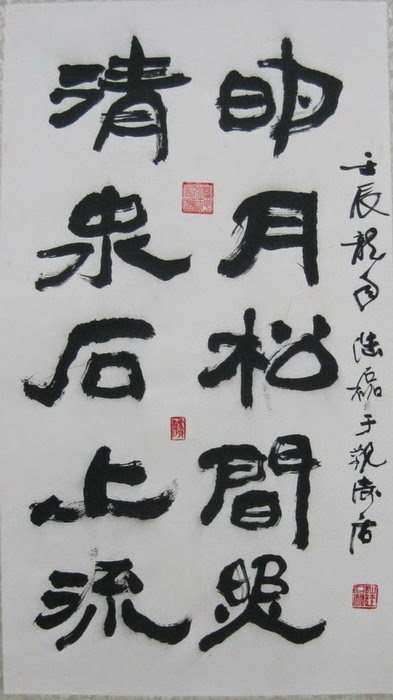 明月松間照
清泉石上流
壬辰 于